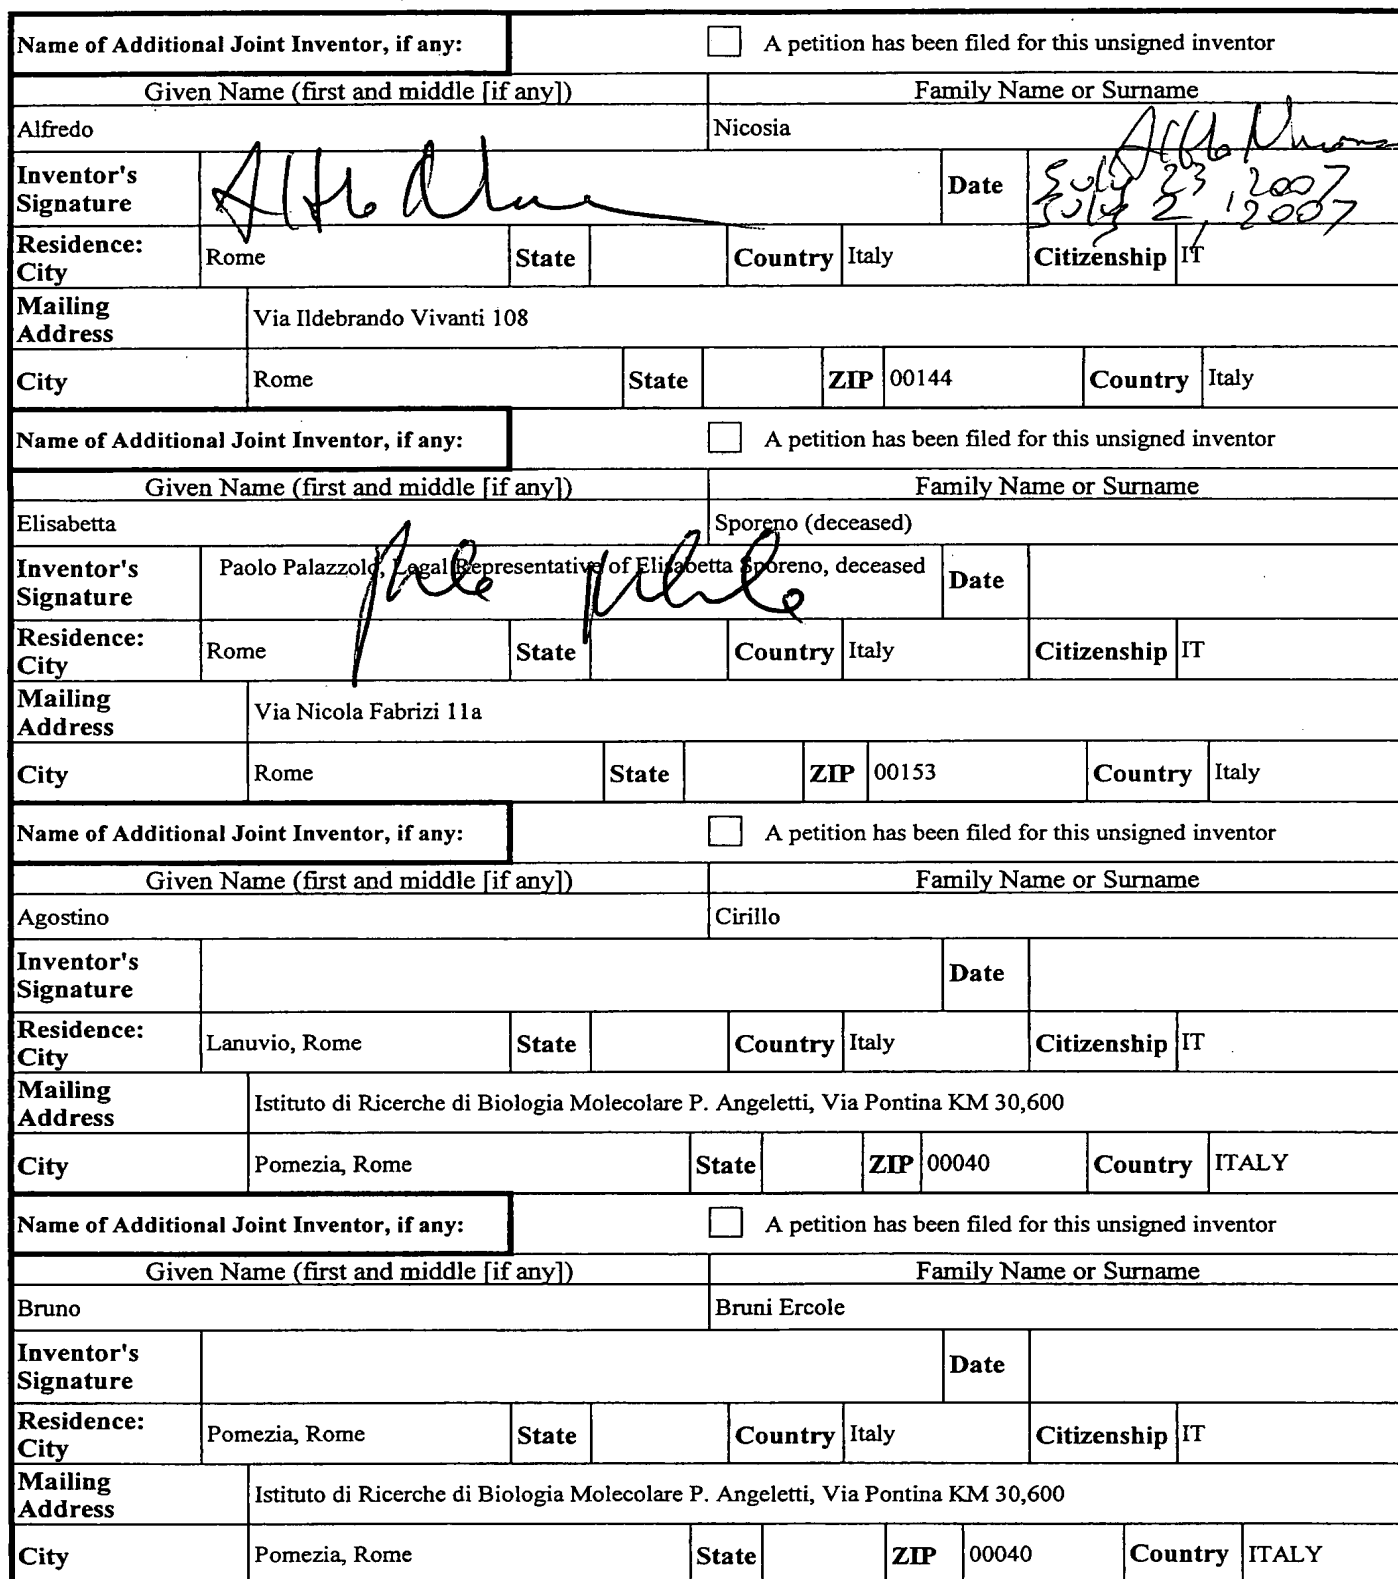 Name of Additional Joint Inventor, if any: A petition has been filed for this unsigned inventor
Given Name (first and middle [if any]) Family Name or Surname
Alfredo Nicosia
Inventor's Signature Date July 23, 2007
July 2, 2007
Residence: City Rome State Country Italy Citizenship IT
Mailing Address Via Ildebrando Vivanti 108
City Rome State ZIP 00144 Country Italy
Name of Additional Joint Inventor, if any: A petition has been filed for this unsigned inventor
Given Name (first and middle [if any]) Family Name or Surname
Elisabetta Sporeno (deceased)
Inventor's Signature Paolo Palazzolo, Legal Representative of Elisabetta Sporeno, deceased Date
Residence: City Rome State Country Italy Citizenship IT
Mailing Address Via Nicola Fabrizi 11a
City Rome State ZIP 00153 Country Italy
Name of Additional Joint Inventor, if any: A petition has been filed for this unsigned inventor
Given Name (first and middle [if any]) Family Name or Surname
Agostino Cirillo
Inventor's Signature Date
Residence: City Lanuvio, Rome State Country Italy Citizenship IT
Mailing Address Istituto di Ricerche di Biologia Molecolare P. Angeletti, Via Pontina KM 30,600
City Pomezia, Rome State ZIP 00040 Country ITALY
Name of Additional Joint Inventor, if any: A petition has been filed for this unsigned inventor
Given Name (first and middle [if any]) Family Name or Surname
Bruno Bruni Ercole
Inventor's Signature Date
Residence: City Pomezia, Rome State Country Italy Citizenship IT
Mailing Address Istituto di Ricerche di Biologia Molecolare P. Angeletti, Via Pontina KM 30,600
City Pomezia, Rome State ZIP 00040 Country ITALY